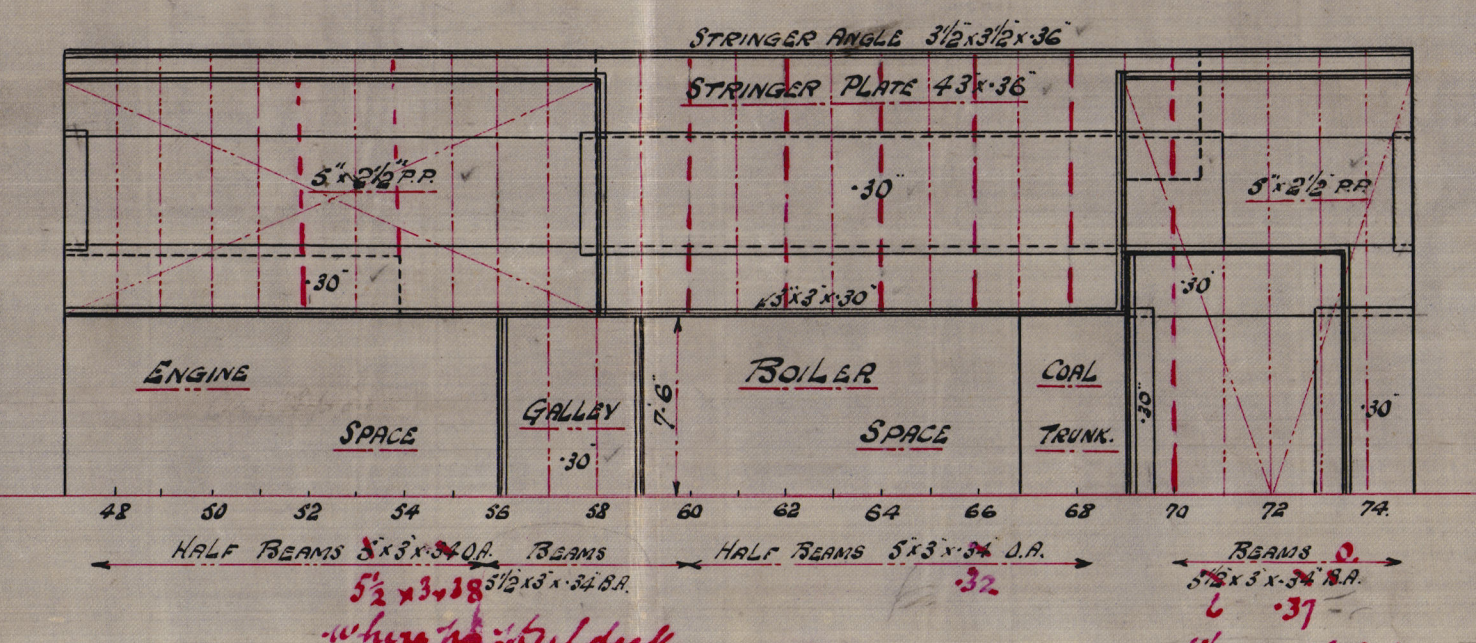 STRINGER ANGLE 3½"x3½"x·36"
STRINGER PLATE 43"x·36"
5"x2½" P.P.
·30"
5"x2½" P.P.
·30"
·30"
5"x3"x·30"
ENGINE
SPACE
GALLEY
·30"
7'·6"
BOILER
SPACE
COAL
TRUNK.
·30"
·30"
48 50 52 54 56 58 60 62 64 66 68 70 72 74.
HALF BEAMS 5"x3"x·34 O.A.
BEAMS
HALF BEAMS 5"x3"x·34" O.A.
BEAMS O.
5½ x3x38
5½"x3"x·34" B.A.
·32
5½"x3"x·34" B.A.
6 ·37
where no steel deck